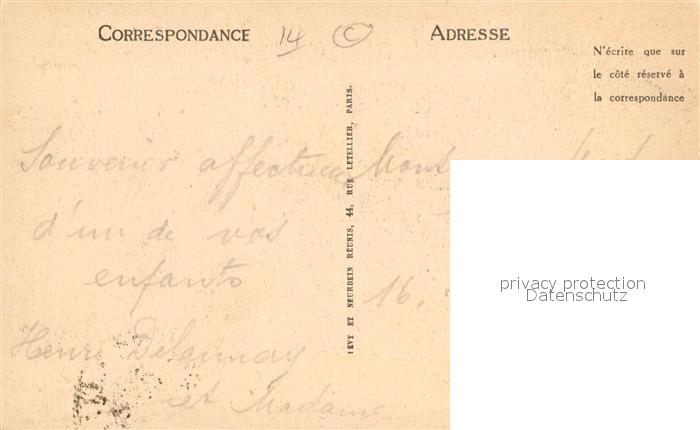 CORRESPONDANCE
14
ADRESSE
N'écrire que sur
le côté réservé à
la correspondance
LÉVY ET NEURDEIN RÉUNIS, 44, RUE LETELLIER, PARIS.
Souvenir affectueux
d'un de vos
enfants
Henri Delaunay
et Madame
16.
privacy protection
Datenschutz